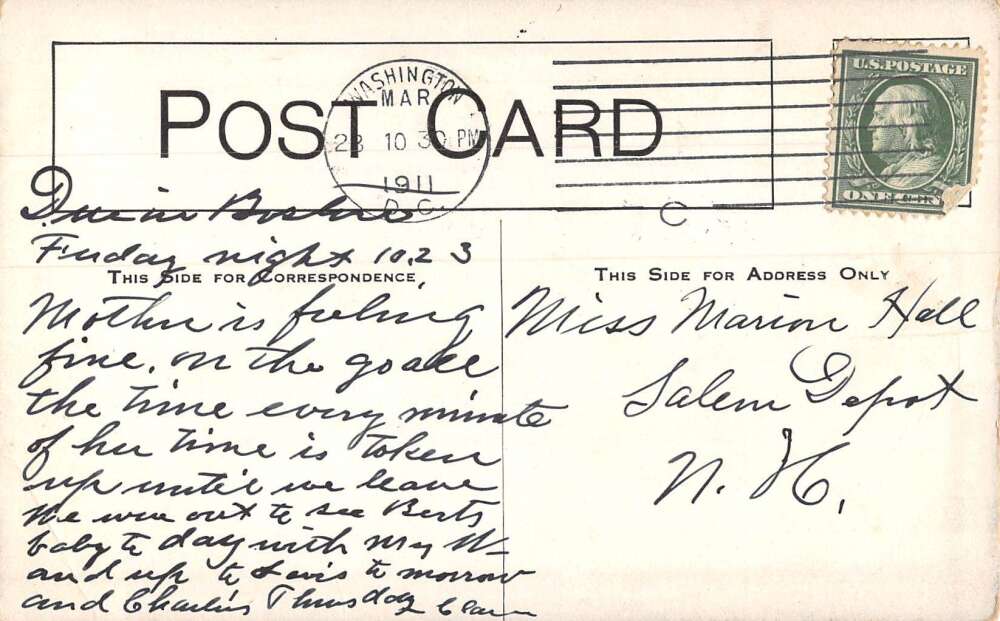 POST CARD
WASHINGTON
MAR
28 10 30 PM
1911
D.C.
U.S. POSTAGE
ONE
Due in Boston
Friday night 10.23
THIS SIDE FOR CORRESPONDENCE
THIS SIDE FOR ADDRESS ONLY
Mother is feeling
fine. on the go all
the time every minute
of her time is taken
up until we leave
We were out to see Berts
baby to day with Mrs W-
and up to to morrow
and Charlie's Thursday
Miss Marion Hall
Salem Depot
N. H.